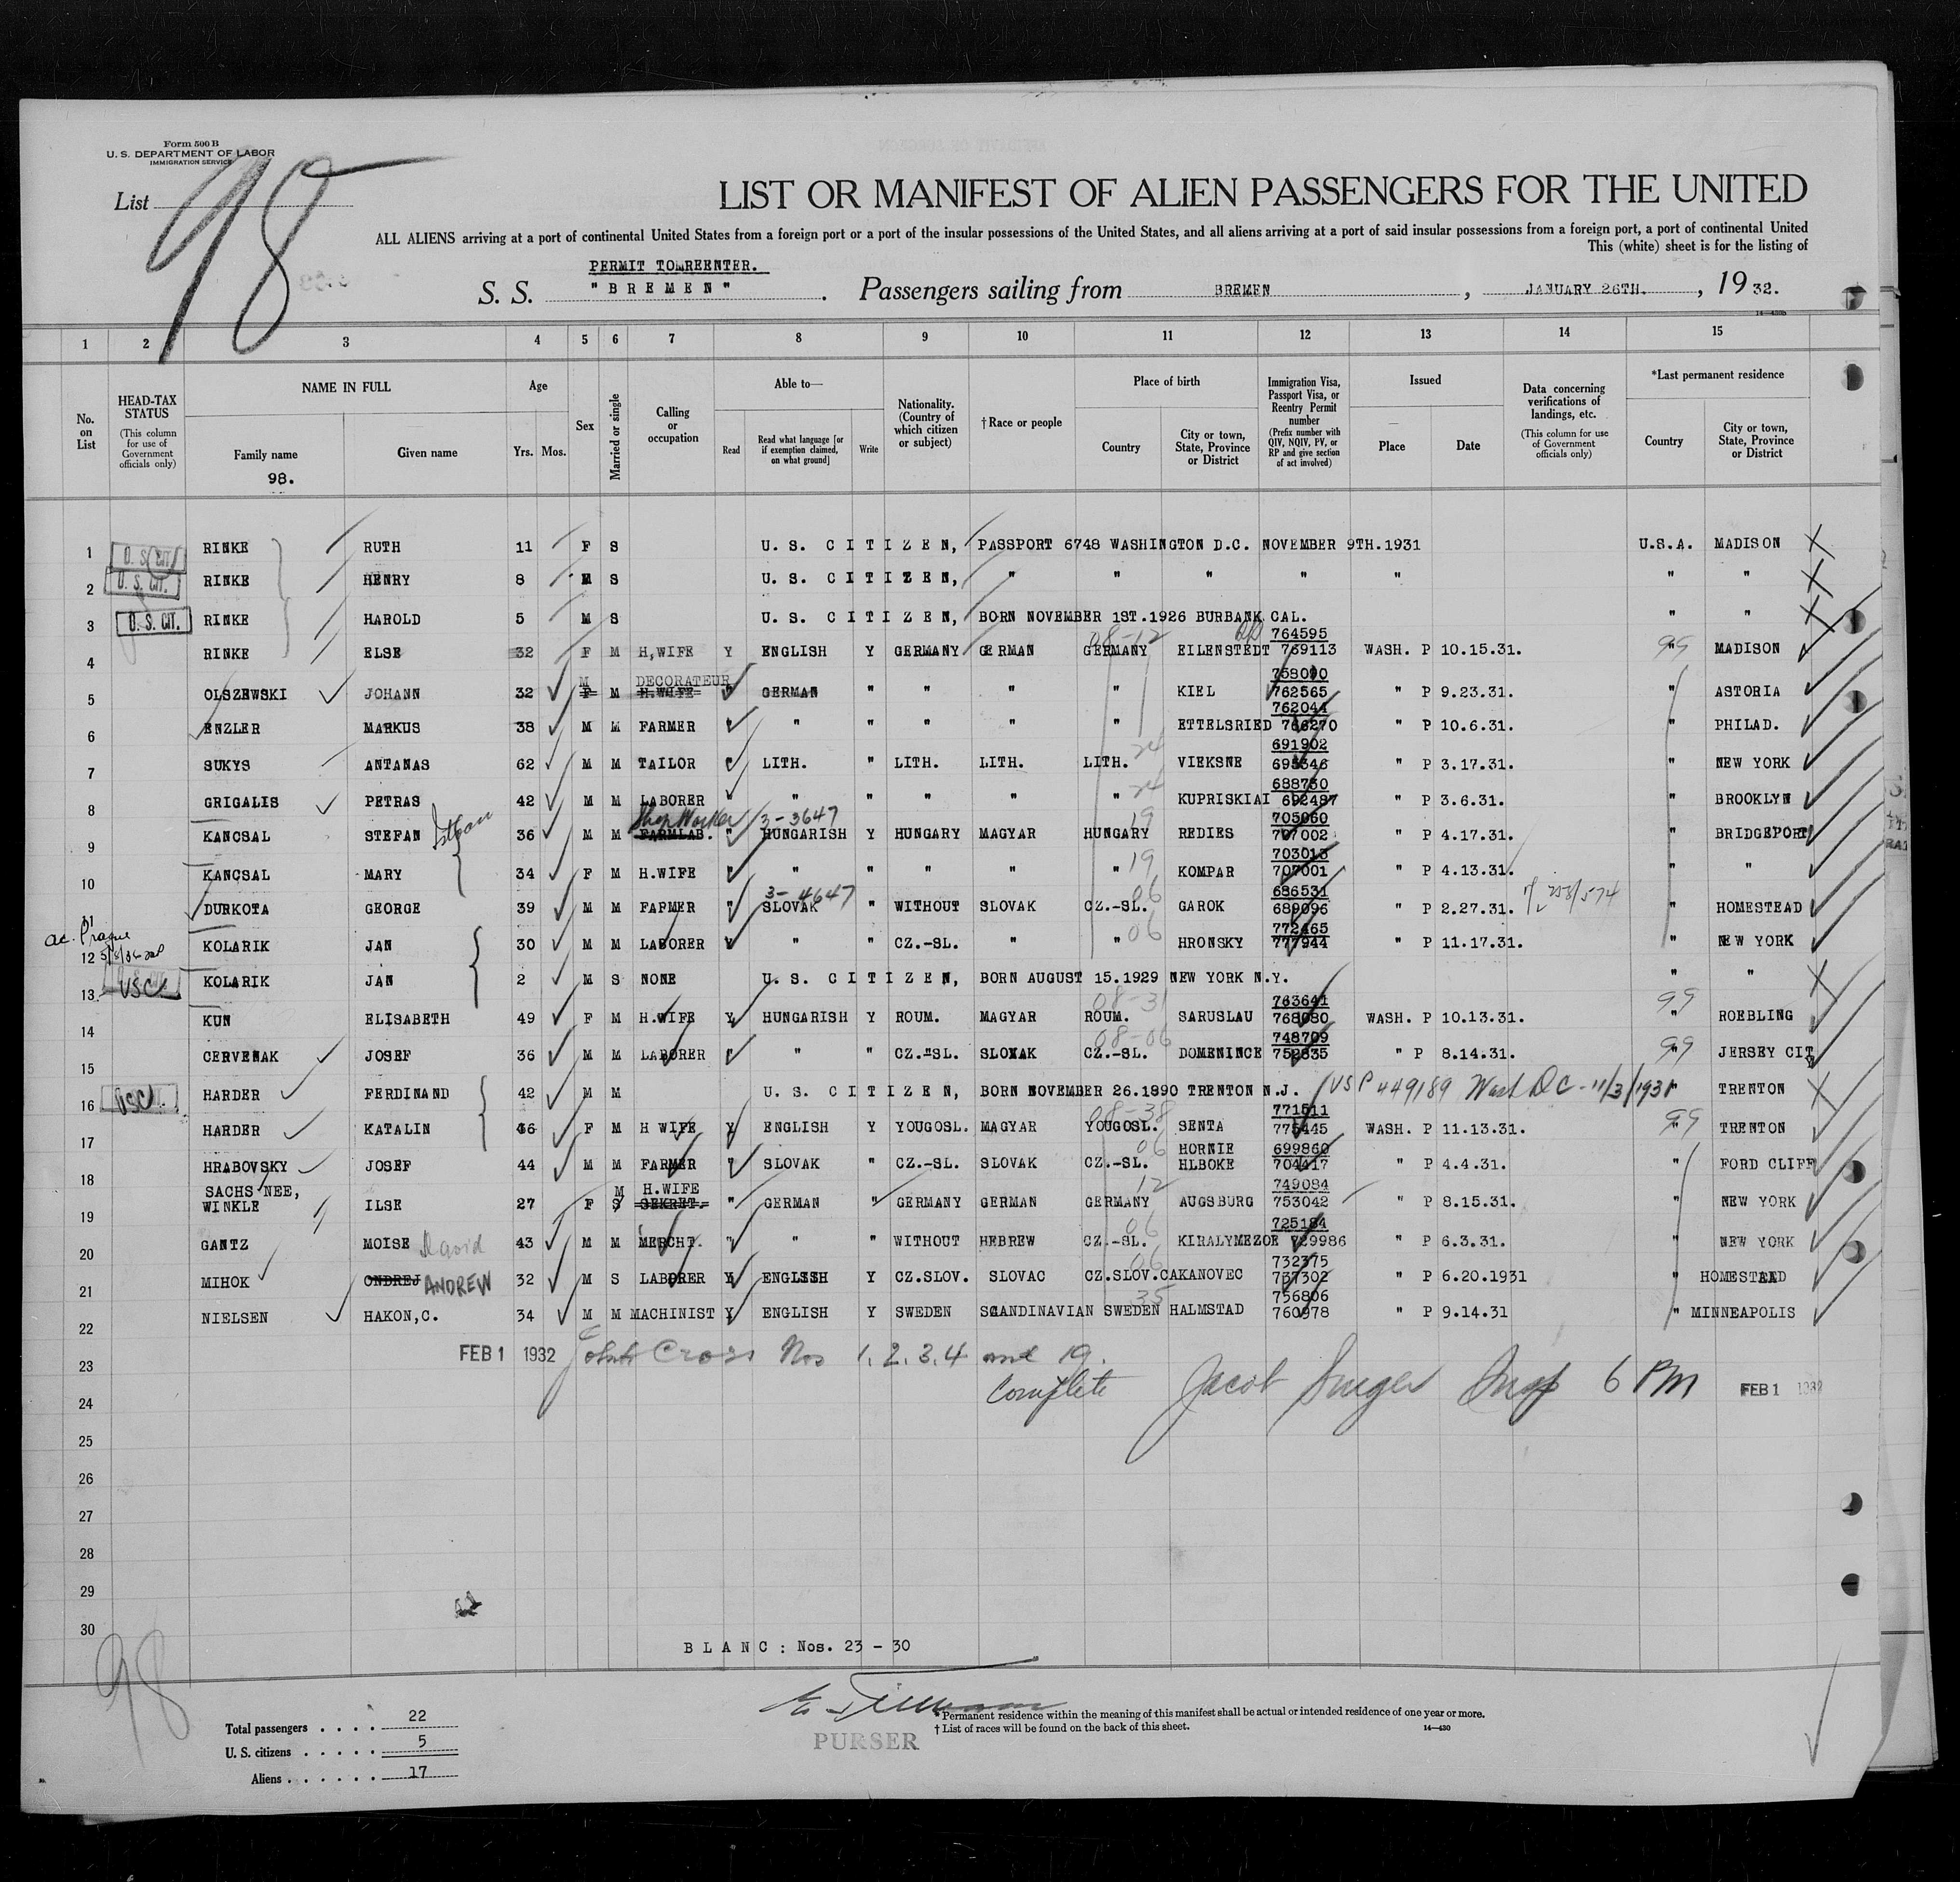 Form 500 B
U. S. DEPARTMENT OF LABOR
IMMIGRATION SERVICE
List 98
LIST OR MANIFEST OF ALIEN PASSENGERS FOR THE UNITED
ALL ALIENS arriving at a port of continental United States from a foreign port or a port of the insular possessions of the United States, and all aliens arriving at a port of said insular possessions from a foreign port, a port of continental United
This (white) sheet is for the listing of
PERMIT TO REENTER.
S. S. "BREMEN". Passengers sailing from BREMEN, JANUARY 26TH., 1932.
14—430b
1 2 3 4 5 6 7 8 9 10 11 12 13 14 15
No. on List
HEAD-TAX STATUS
(This column for use of Government officials only)
NAME IN FULL
Family name
98.
Given name
Age
Yrs. Mos.
Sex
Married or single
Calling or occupation
Able to—
Read
Read what language [or if exemption claimed, on what ground]
Write
Nationality. (Country of which citizen or subject)
† Race or people
Place of birth
Country
City or town, State, Province or District
Immigration Visa, Passport Visa, or Reentry Permit number
(Prefix number with QIV, NQIV, PV, or RP and give section of act involved)
Issued
Place
Date
Data concerning verifications of landings, etc.
(This column for use of Government officials only)
*Last permanent residence
Country
City or town, State, Province or District
1 U. S. CIT. RINKE RUTH 11 F S U. S. CITIZEN, PASSPORT 6748 WASHINGTON D.C. NOVEMBER 9TH.1931 U.S.A. MADISON
2 U. S. CIT. RINKE HENRY 8 M S U. S. CITIZEN, " " " " " " "
3 U. S. CIT. RINKE HAROLD 5 M S U. S. CITIZEN, BORN NOVEMBER 1ST.1926 BURBANK CAL. " "
08-12 764595
4 RINKE ELSE 32 F M H,WIFE Y ENGLISH Y GERMANY GERMAN GERMANY EILENSTEDT 769113 WASH. P 10.15.31. 99 " MADISON
M DECORATEUR 758090
5 OLSZEWSKI JOHANN 32 F M H.WIFE " GERMAN " " " " KIEL 762565 " P 9.23.31. " ASTORIA
762044
6 ENZLER MARKUS 38 M M FARMER " " " " " ETTELSRIED 766270 " P 10.6.31. " PHILAD.
24 691902
7 SUKYS ANTANAS 62 M M TAILOR " LITH. " LITH. LITH. LITH. VIEKSNE 695346 " P 3.17.31. " NEW YORK
24 688730
8 GRIGALIS PETRAS 42 M M LABORER " " " " " " KUPRISKIAI 692487 " P 3.6.31. " BROOKLYN
Istvan Shop Worker 3-3647 19 705060
9 KANCSAL STEFAN 36 M M FARMLAB. " HUNGARISH Y HUNGARY MAGYAR HUNGARY REDIES 707002 " P 4.17.31. " BRIDGEPORT
19 703013
10 KANCSAL MARY 34 F M H.WIFE " " " " " " KOMPAR 707001 " P 4.13.31. " "
3-4647 06 686531
11 DURKOTA GEORGE 39 M M FARMER " SLOVAK " WITHOUT SLOVAK CZ.-SL. GAROK 689096 " P 2.27.31. " HOMESTEAD
ac. Prague 06 772465
12 KOLARIK JAN 30 M M LABORER " " " CZ.-SL. " " HRONSKY 777944 " P 11.17.31. " NEW YORK
13 USC KOLARIK JAN 2 M S NONE U. S. CITIZEN, BORN AUGUST 15.1929 NEW YORK N.Y. " "
08-31 763641
14 KUN ELISABETH 49 F M H.WIFE Y HUNGARISH Y ROUM. MAGYAR ROUM. SARUSLAU 768080 WASH. P 10.13.31. 99 " ROEBLING
08-06 748709
15 CERVENAK JOSEF 36 M M LABORER " " " CZ.-SL. SLOVAK CZ.-SL. DOMENINCE 752835 " P 8.14.31. 99 " JERSEY CIT
16 USC HARDER FERDINAND 42 M M U. S. CITIZEN, BORN NOVEMBER 26.1890 TRENTON N.J. USP 449189 Wash DC - 11/3/1931 " TRENTON
08-38 771511
17 HARDER KATALIN 46 F M H WIFE Y ENGLISH Y YOUGOSL. MAGYAR YOUGOSL. SENTA 775445 WASH. P 11.13.31. 99 " TRENTON
06 HORNIE 699860
18 HRABOVSKY JOSEF 44 M M FARMER " SLOVAK " CZ.-SL. SLOVAK CZ.-SL. HLBOKE 704417 " P 4.4.31. " FORD CLIFF
SACHS NEE, M H.WIFE 12 749084
19 WINKLE ILSE 27 F S SEKRET. " GERMAN " GERMANY GERMAN GERMANY AUGSBURG 753042 " P 8.15.31. " NEW YORK
06 725184
20 GANTZ MOISE David 43 M M MERCHT. " " " WITHOUT HEBREW CZ.-SL. KIRALYMEZOE 729986 " P 6.3.31. " NEW YORK
06 732375
21 MIHOK ONDREJ ANDREW 32 M S LABORER Y ENGLISH Y CZ.SLOV. SLOVAC CZ.SLOV. CAKANOVEC 737302 " P 6.20.1931 " HOMESTEAD
35 756806
22 NIELSEN HAKON,C. 34 M M MACHINIST Y ENGLISH Y SWEDEN SCANDINAVIAN SWEDEN HALMSTAD 760978 " P 9.14.31 " MINNEAPOLIS
23 FEB 1 1932 Cross Nos 1,2,3,4 and 19.
24 Complete Jacob Insp 6 PM FEB 1 1932
25
26
27
28
29
30
BLANC: Nos. 23 - 30
98
Total passengers . . . . 22
U. S. citizens . . . . . 5
Aliens . . . . . . 17
PURSER
* Permanent residence within the meaning of this manifest shall be actual or intended residence of one year or more.
† List of races will be found on the back of this sheet. 14—430